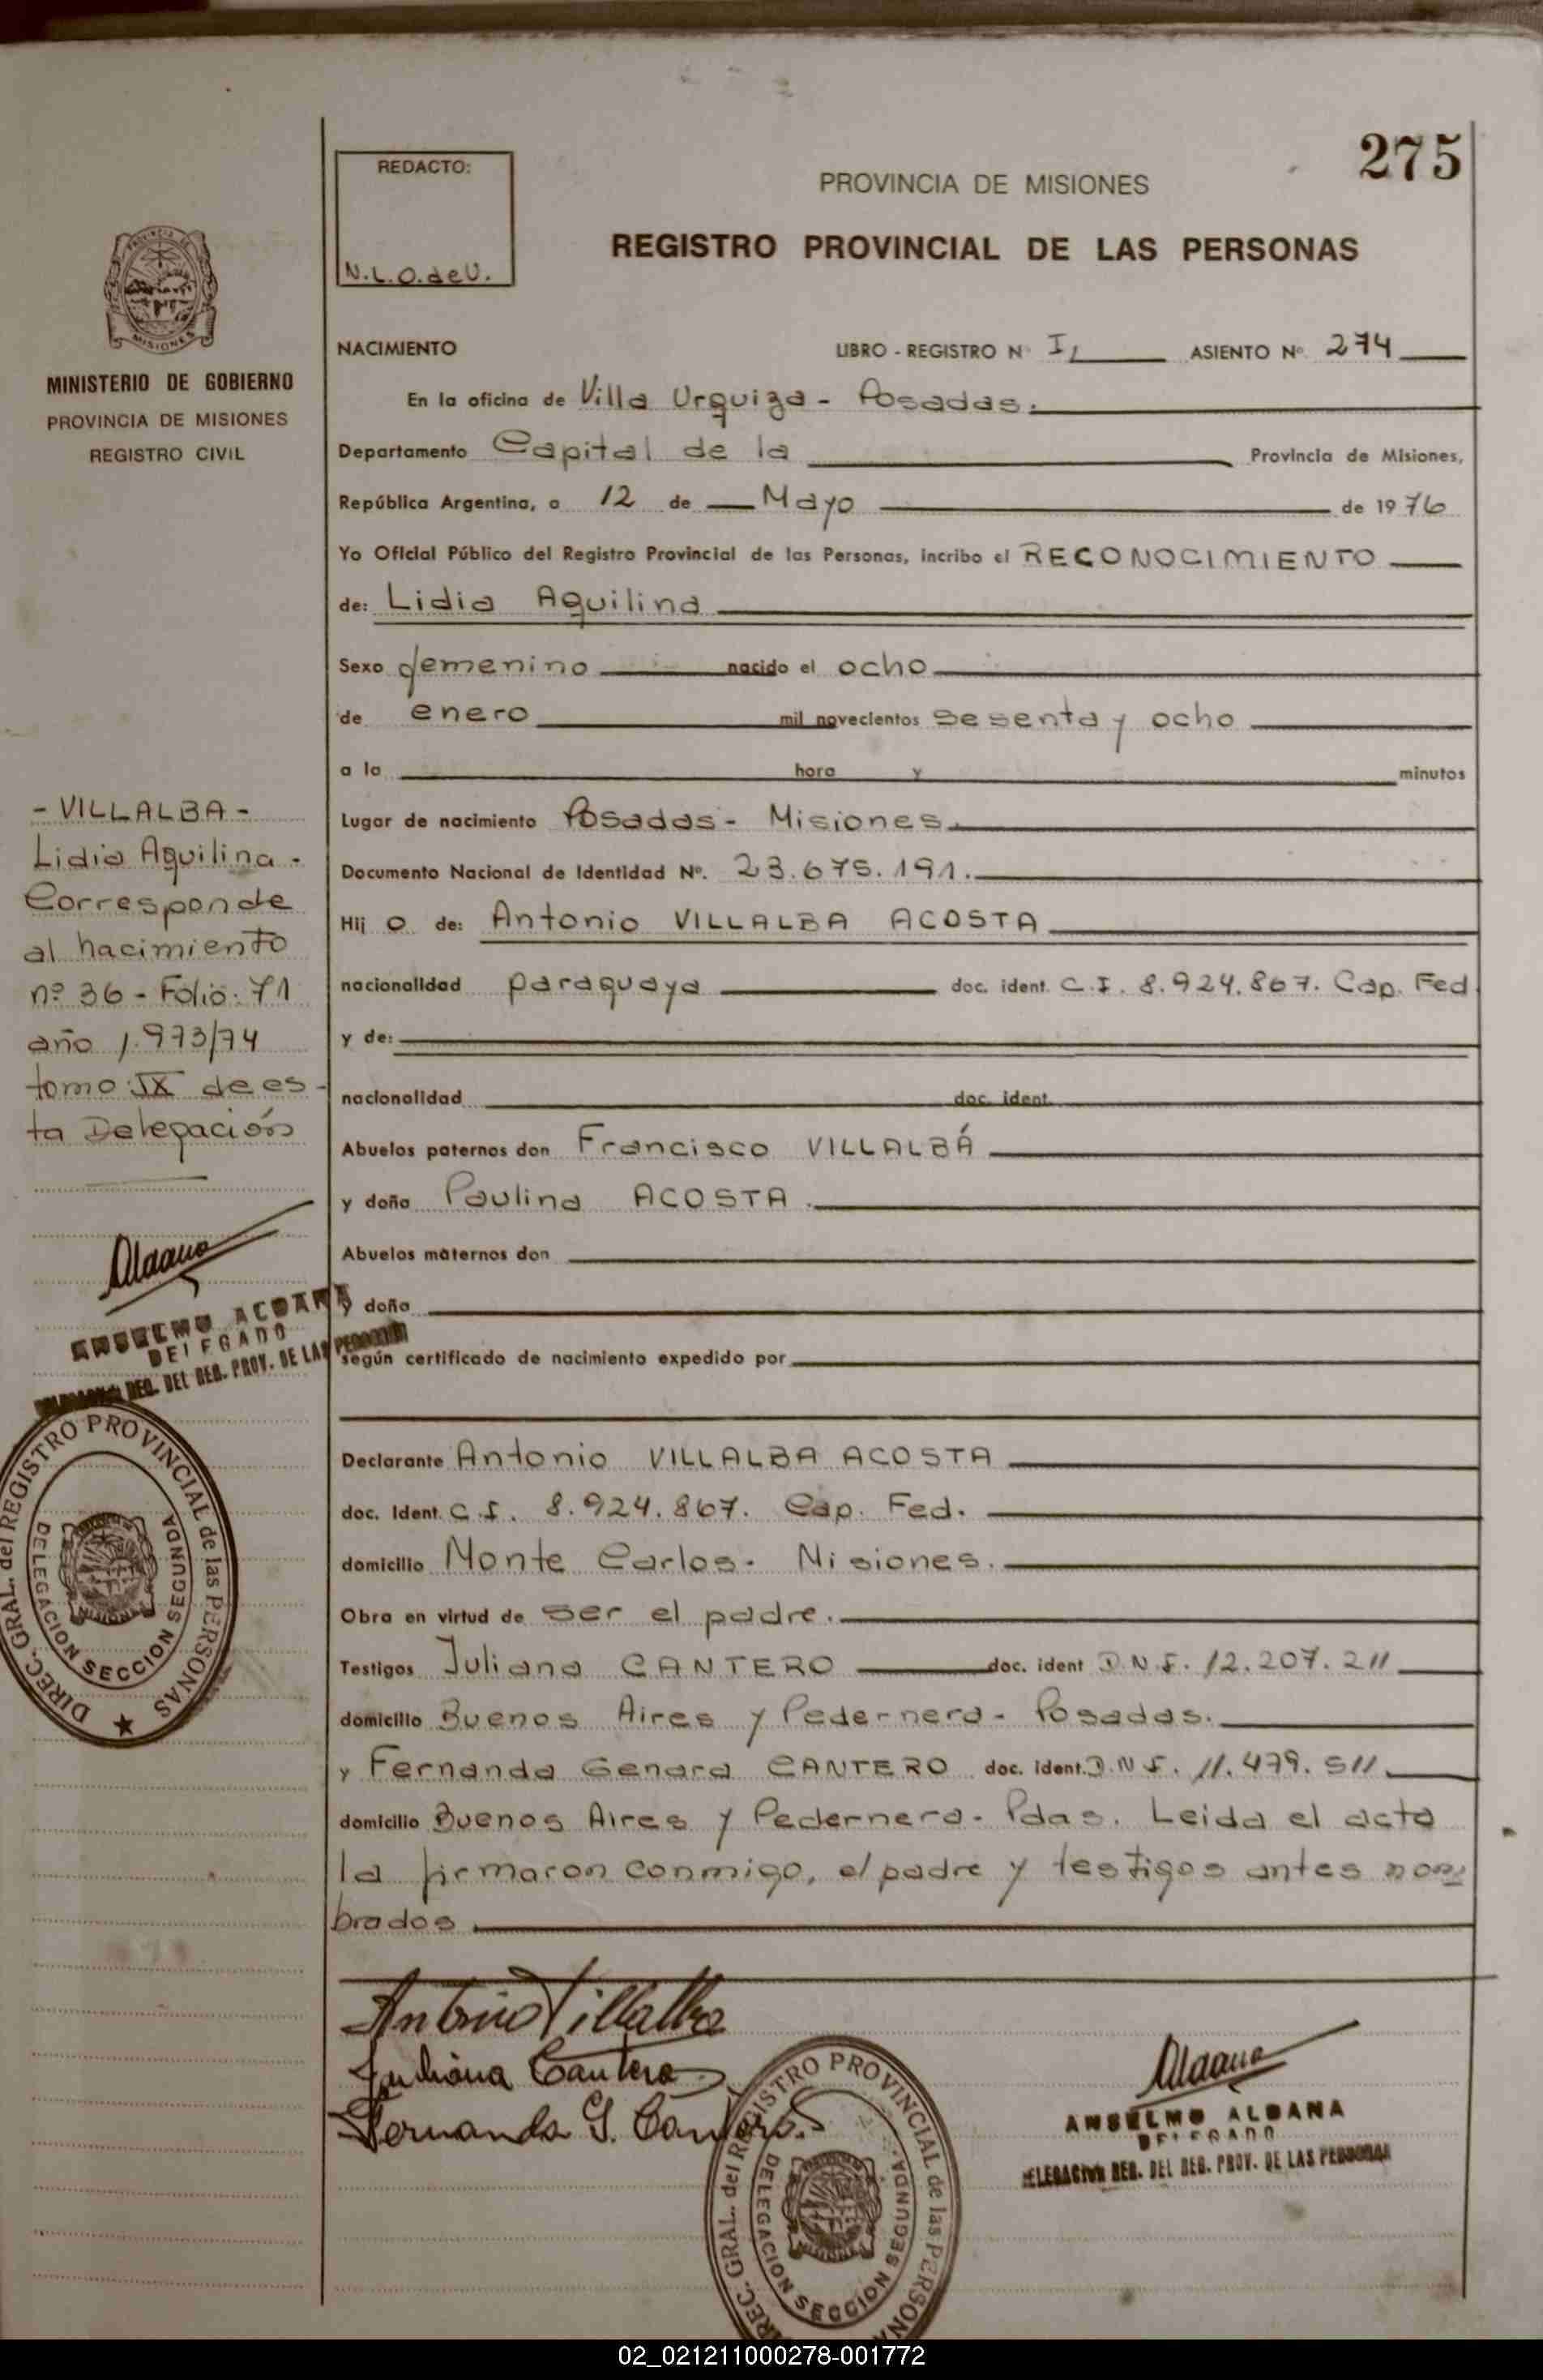 275
REDACTO:
N.L.O. de U.
PROVINCIA DE MISIONES
REGISTRO PROVINCIAL DE LAS PERSONAS
MINISTERIO DE GOBIERNO
PROVINCIA DE MISIONES
REGISTRO CIVIL
NACIMIENTO LIBRO - REGISTRO Nº I, ASIENTO Nº 274
En la oficina de Villa Urquiza - Posadas.
Departamento Capital de la Provincia de Misiones,
República Argentina, a 12 de Mayo de 1976
Yo Oficial Público del Registro Provincial de las Personas, incribo el RECONOCIMIENTO
de: Lidia Aquilina
Sexo femenino nacido el ocho
de enero mil novecientos sesenta y ocho
a la hora y minutos
Lugar de nacimiento Posadas - Misiones.
Documento Nacional de Identidad Nº. 23.675.191.
Hij o de: Antonio VILLALBA ACOSTA
nacionalidad paraguaya doc. ident. C.I. 8.924.867. Cap. Fed
y de:
nacionalidad doc. ident.
Abuelos paternos don Francisco VILLALBÁ
y doña Paulina ACOSTA.
Abuelos maternos don
y doña
según certificado de nacimiento expedido por
Declarante Antonio VILLALBA ACOSTA
doc. Ident. C.I. 8.924.867. Cap. Fed.
domicilio Monte Carlos - Misiones.
Obra en virtud de ser el padre.
Testigos Juliana CANTERO doc. ident D.N.I. 12.207.211
domicilio Buenos Aires y Pedernera - Posadas.
y Fernanda Genara CANTERO doc. ident. D.N.I. 11.479.511
domicilio Buenos Aires y Pedernera - Pdas. Leida el acta
la firmaron conmigo, el padre y testigos antes nom
brados
- VILLALBA -
Lidia Aquilina -
Corresponde
al nacimiento
nº 36 - Folio: 71
año 1.973/74
tomo IX de es -
ta Delegación
Aldana
DELEGADO
REG. DEL REG. PROV. DE LAS
DIREC. GRAL. del REGISTRO PROVINCIAL de las PERSONAS
DELEGACION SECCION SEGUNDA
Antonio Villalba
Juliana Cantero
Fernanda G. Cantero.
DIREC. GRAL. del REGISTRO PROVINCIAL de las PERSONA
DELEGACION SECCION SEGUNDA
Aldana
ANSELMO ALDANA
DELEGADO
DELEGACION REG. DEL REG. PROV. DE LAS PERSONAS
02_021211000278-001772